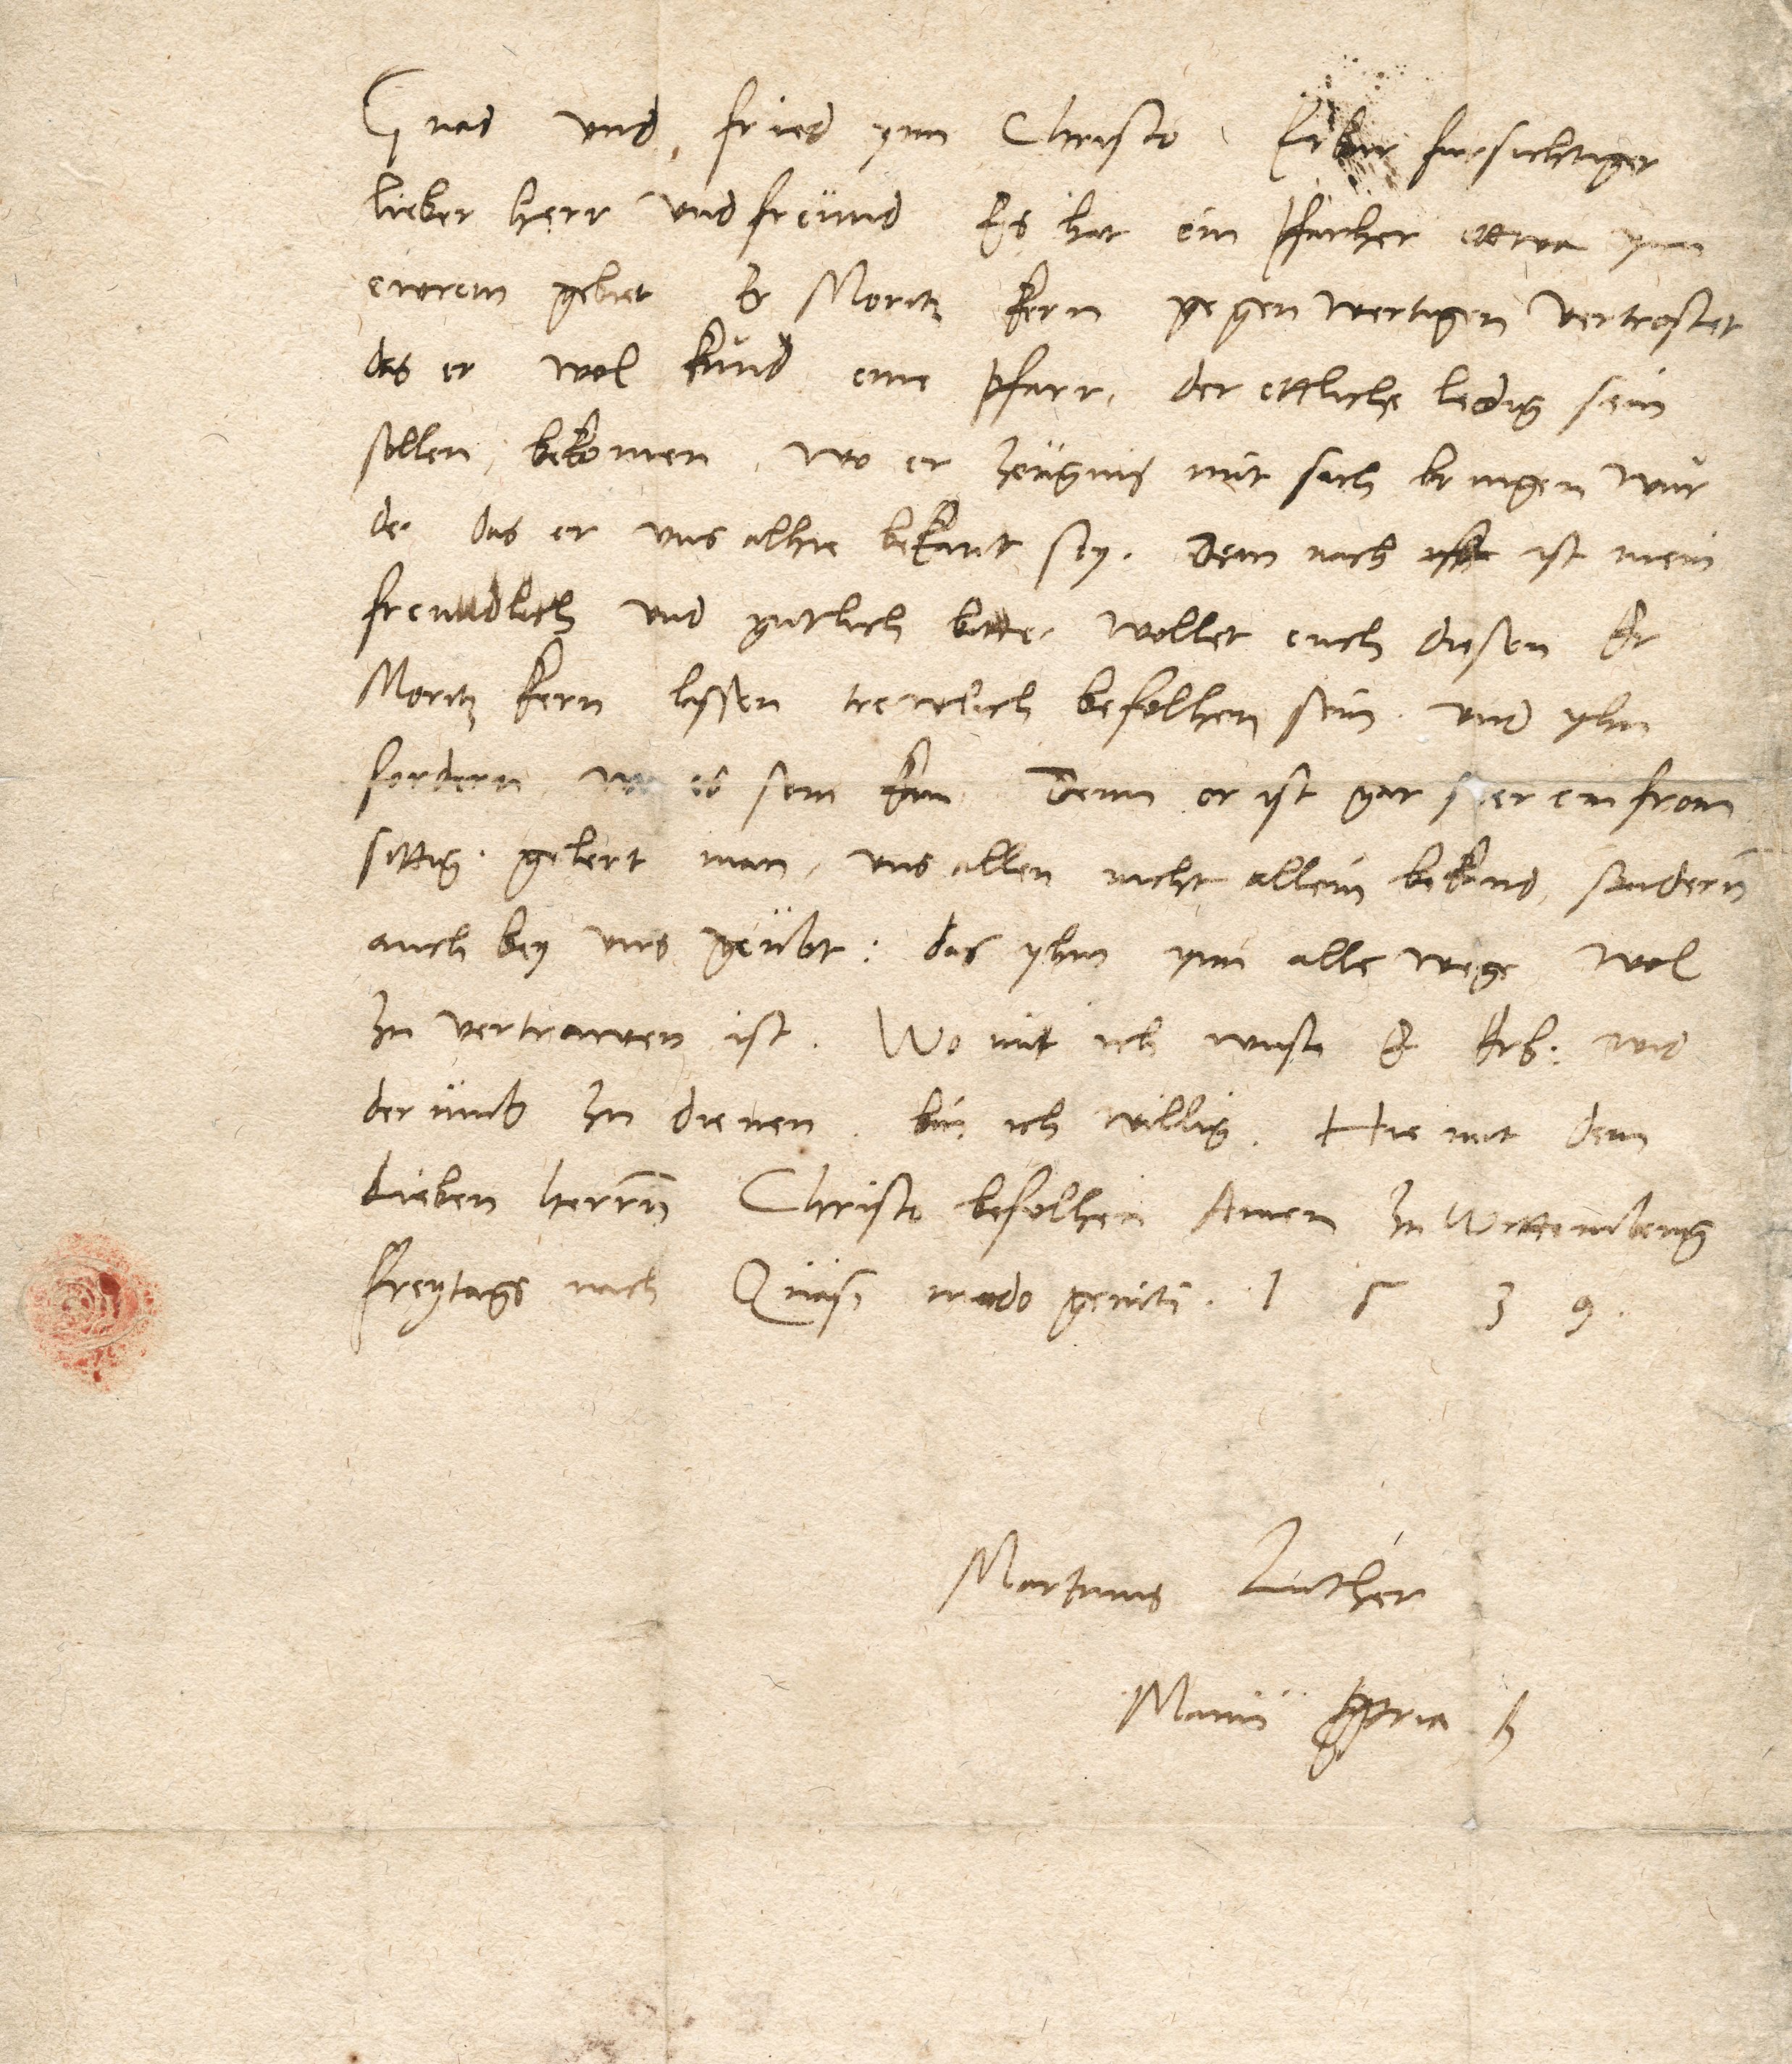 Gnad und fried ynn Christo Erbar fursichtiger
lieber herr und freund Es hat ein pfarher ettwa ynn
ewrem gebiet Er Moritz kern gegenwertigen vertrostet
das er wol kund eine pfarr, der ettliche ledig sein
sollen, bekomen, wo er zeugnis mit sich bringen wur
de das er uns alhie bekant sey. Dem nach ist mein
freundlich und gutlich bitte, wollet euch diesen Er
Moritz kern lassen trewlich befolhen sein. und yhn
fordern, wo es sein kan Denn er ist gar seer ein from
sittig. gelert man, uns allen nicht allein bekand, sondern
auch bey uns geubt: das yhm ynn alle wege wol
zu vertrawen ist. Wo mit ich wuste E Erb. wid
derumb zu dienen, bin ich willig. Hie mit dem
lieben herrn Christo befolhen Amen Zu Wittemberg
freytags nach Quasi modo geniti. 1 5 3 9.
Martinus Luther
Manu ppria